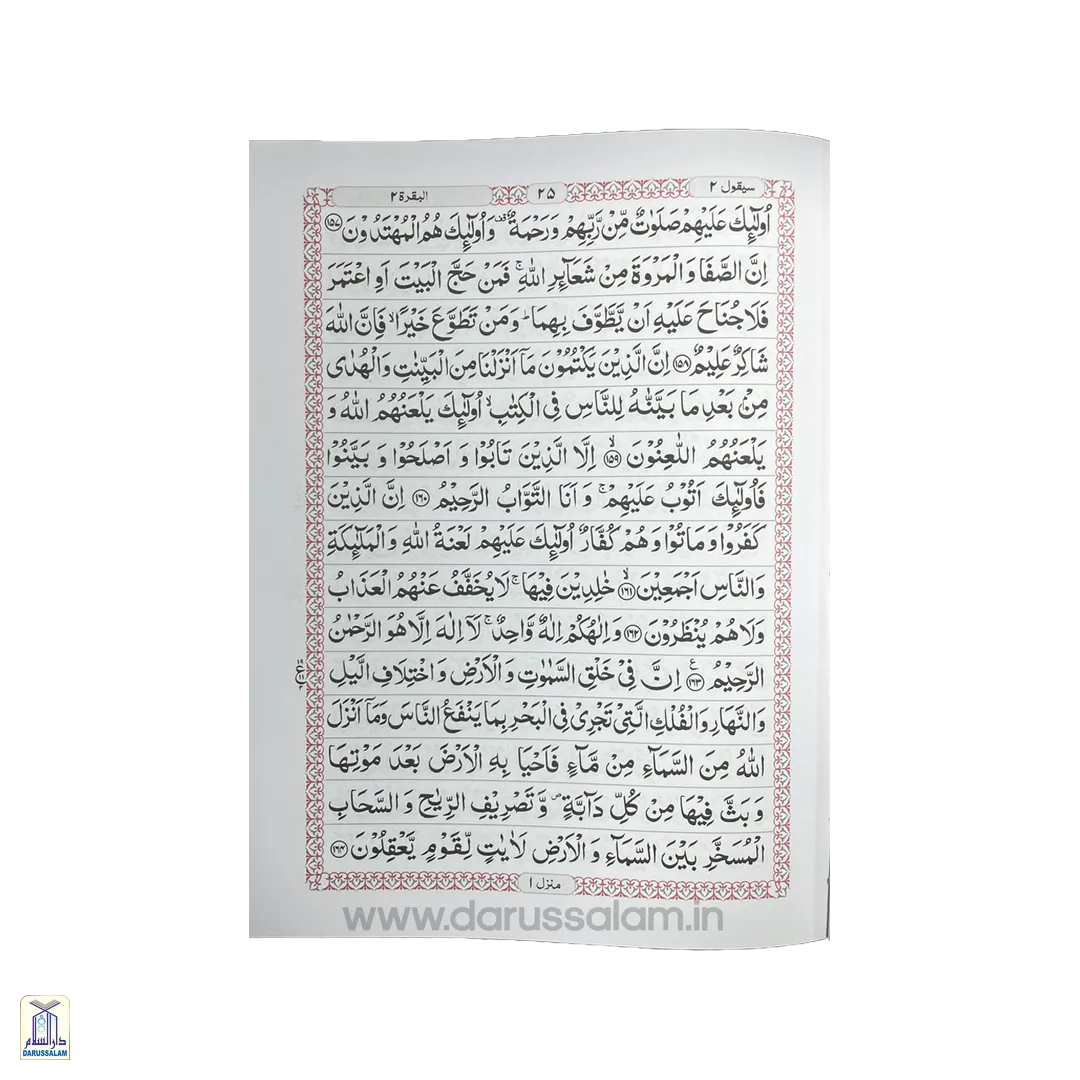 سيقول ٢
٢٥
البقرة ٢
اُولٰٓئِكَ عَلَيْهِمْ صَلَوٰتٌ مِّنْ رَّبِّهِمْ وَرَحْمَةٌ ۫ وَاُولٰٓئِكَ هُمُ الْمُهْتَدُوْنَ ﴿١٥٧﴾
اِنَّ الصَّفَا وَ الْمَرْوَةَ مِنْ شَعَآئِرِ اللّٰهِ ۚ فَمَنْ حَجَّ الْبَيْتَ اَوِ اعْتَمَرَ
فَلَا جُنَاحَ عَلَيْهِ اَنْ يَّطَّوَّفَ بِهِمَا ؕ وَمَنْ تَطَوَّعَ خَيْرًا ۙ فَاِنَّ اللّٰهَ
شَاكِرٌ عَلِيْمٌ ﴿١٥٨﴾ اِنَّ الَّذِيْنَ يَكْتُمُوْنَ مَآ اَنْزَلْنَا مِنَ الْبَيِّنٰتِ وَالْهُدٰى
مِنْۢ بَعْدِ مَا بَيَّنّٰهُ لِلنَّاسِ فِى الْكِتٰبِ ۙ اُولٰٓئِكَ يَلْعَنُهُمُ اللّٰهُ وَ
يَلْعَنُهُمُ اللّٰعِنُوْنَ ۙ﴿١٥٩﴾ اِلَّا الَّذِيْنَ تَابُوْا وَ اَصْلَحُوْا وَ بَيَّنُوْا
فَاُولٰٓئِكَ اَتُوْبُ عَلَيْهِمْ ۚ وَ اَنَا التَّوَّابُ الرَّحِيْمُ ﴿١٦٠﴾ اِنَّ الَّذِيْنَ
كَفَرُوْا وَ مَاتُوْا وَ هُمْ كُفَّارٌ اُولٰٓئِكَ عَلَيْهِمْ لَعْنَةُ اللّٰهِ وَ الْمَلٰٓئِكَةِ
وَالنَّاسِ اَجْمَعِيْنَ ۙ﴿١٦١﴾ خٰلِدِيْنَ فِيْهَا ۚ لَا يُخَفَّفُ عَنْهُمُ الْعَذَابُ
وَلَا هُمْ يُنْظَرُوْنَ ﴿١٦٢﴾ وَ اِلٰهُكُمْ اِلٰهٌ وَّاحِدٌ ۚ لَآ اِلٰهَ اِلَّا هُوَ الرَّحْمٰنُ
ع
الرَّحِيْمُ ﴿١٦٣﴾ اِنَّ فِىْ خَلْقِ السَّمٰوٰتِ وَ الْاَرْضِ وَ اخْتِلَافِ الَّيْلِ
وَالنَّهَارِ وَ الْفُلْكِ الَّتِىْ تَجْرِىْ فِى الْبَحْرِ بِمَا يَنْفَعُ النَّاسَ وَمَآ اَنْزَلَ
اللّٰهُ مِنَ السَّمَآءِ مِنْ مَّآءٍ فَاَحْيَا بِهِ الْاَرْضَ بَعْدَ مَوْتِهَا
وَ بَثَّ فِيْهَا مِنْ كُلِّ دَآبَّةٍ ۪ وَّ تَصْرِيْفِ الرِّيٰحِ وَ السَّحَابِ
الْمُسَخَّرِ بَيْنَ السَّمَآءِ وَ الْاَرْضِ لَاٰيٰتٍ لِّقَوْمٍ يَّعْقِلُوْنَ ﴿١٦٤﴾
منزل ١
www.darussalam.in
دار السلام
DARUSSALAM